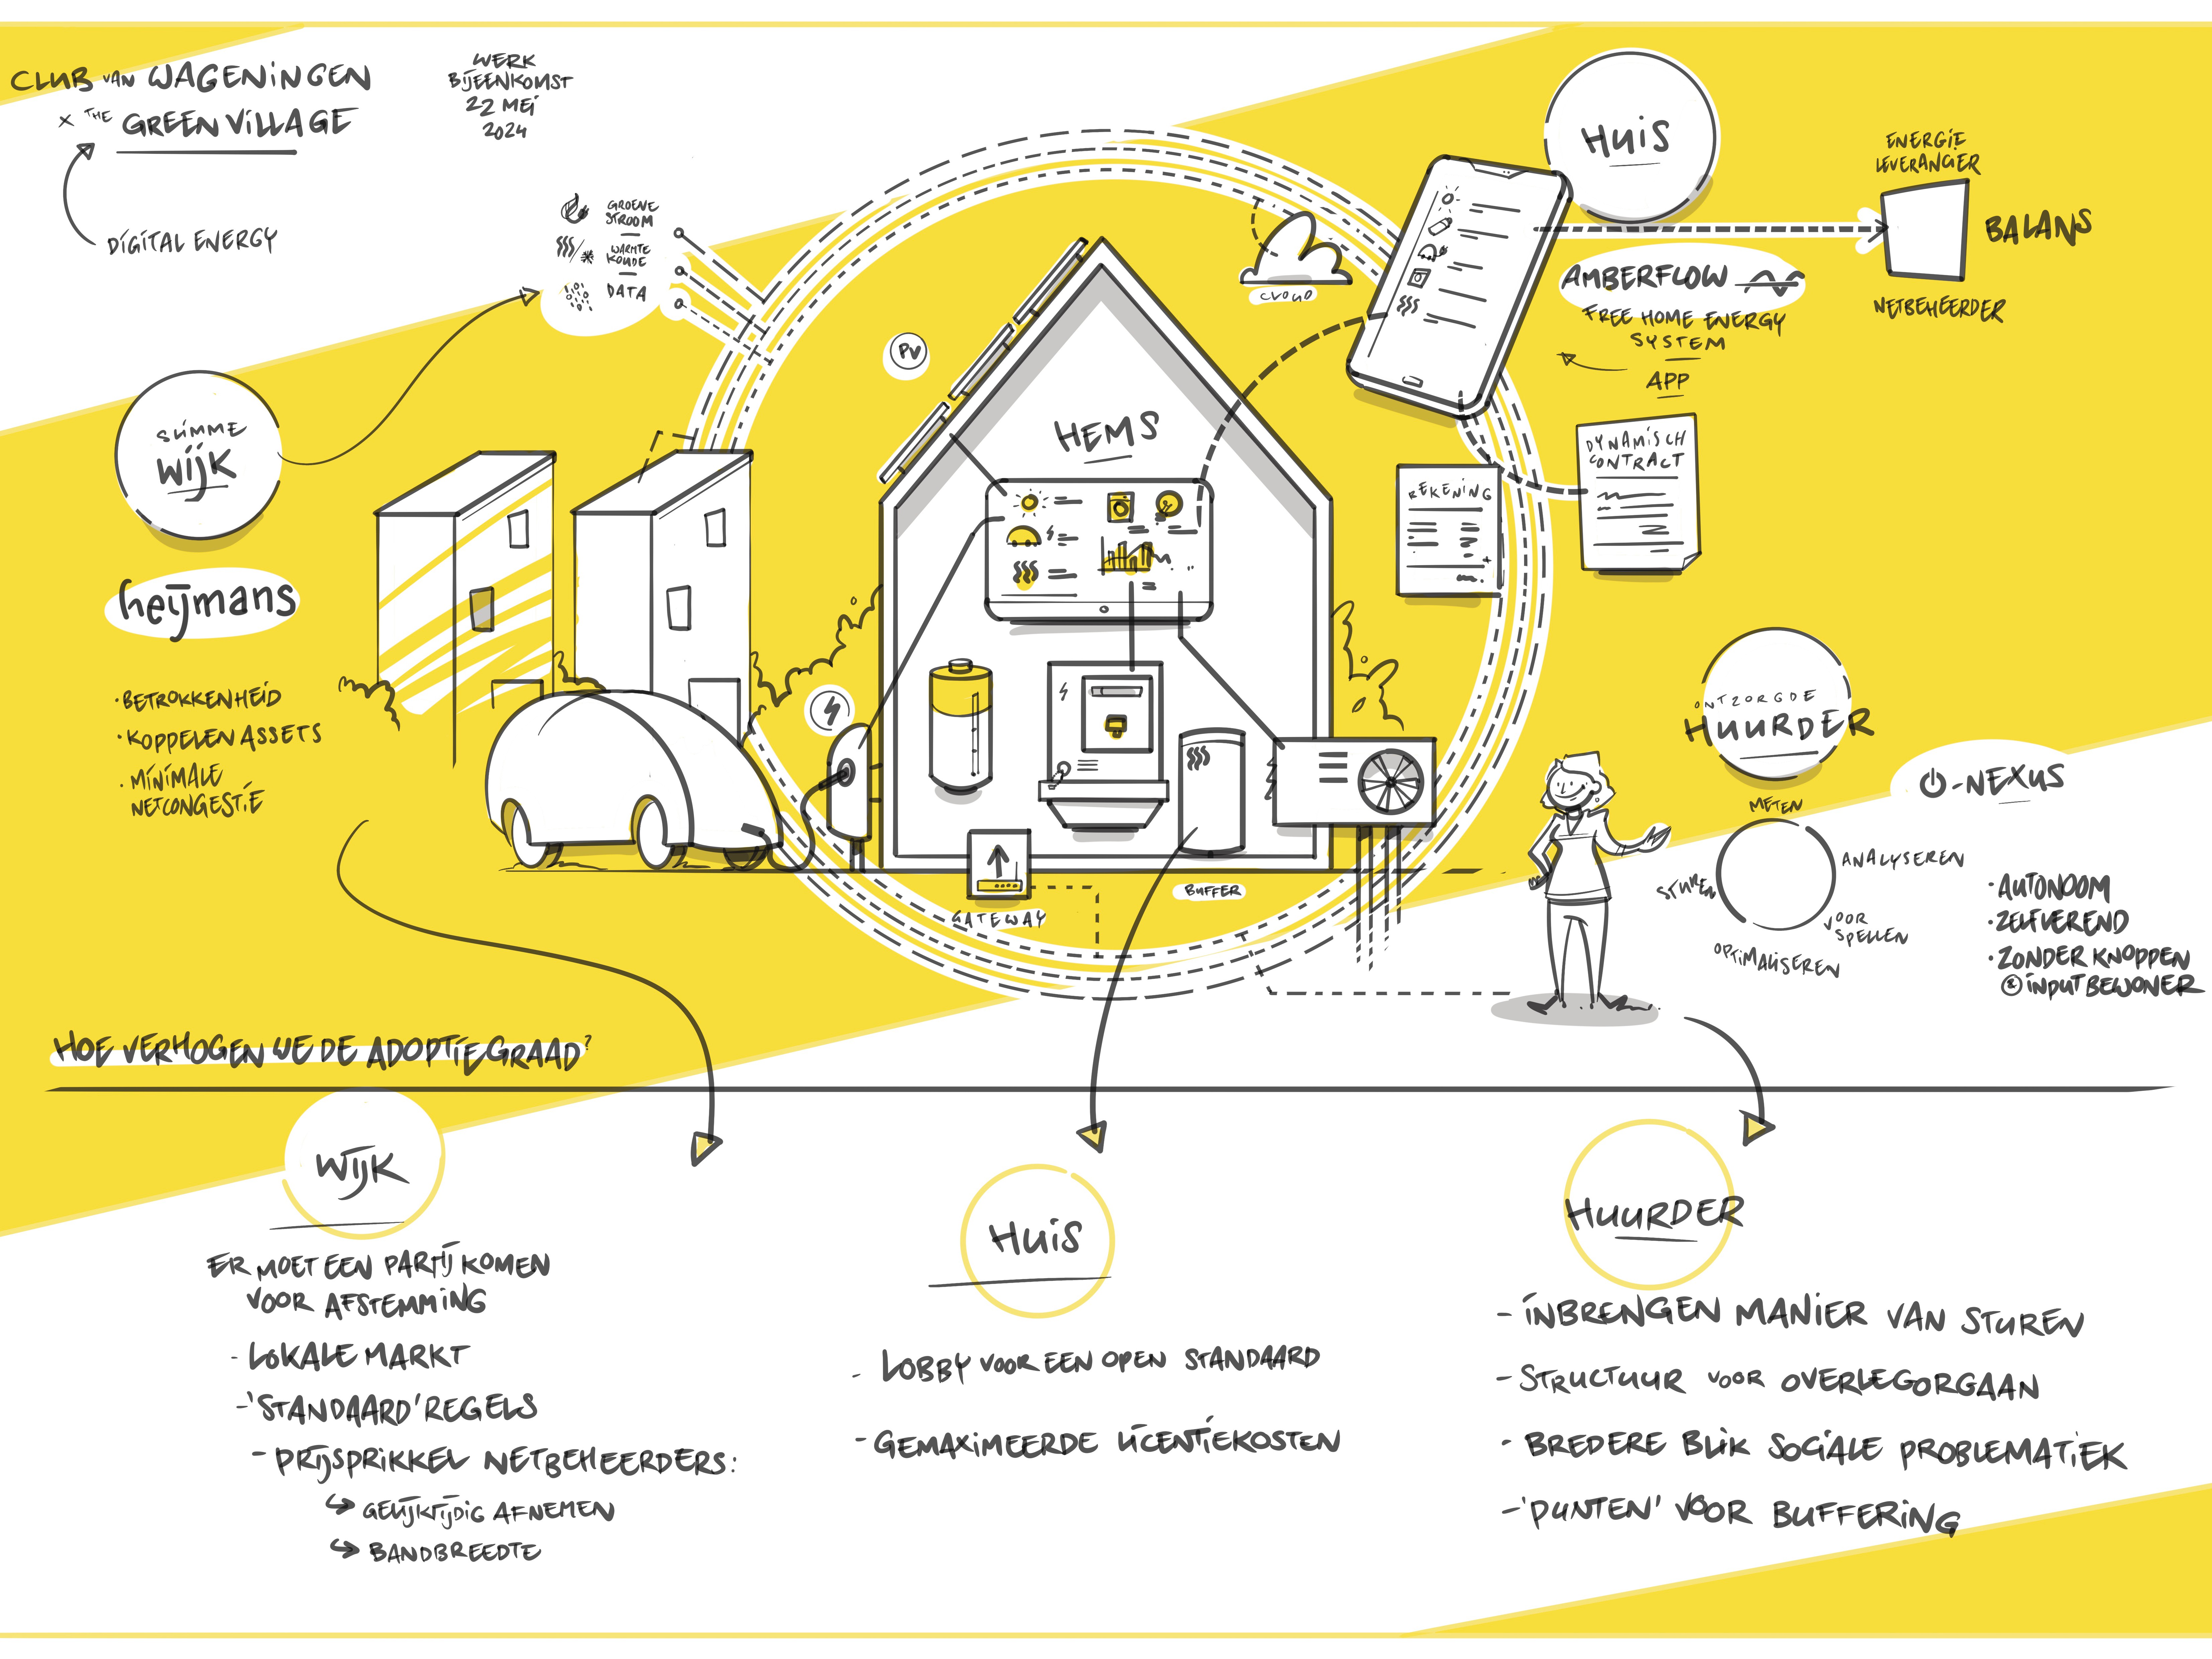 CLUB VAN WAGENINGEN
x THE GREEN VILLAGE
DIGITAL ENERGY
WERK
BIJEENKOMST
22 MEI
2024
GROENE
STROOM
WARMTE
KOUDE
DATA
SLIMME
WIJK
heijmans
· BETROKKENHEID
· KOPPELEN ASSETS
· MINIMALE
NETCONGESTIE
PV
HEMS
CLOUD
GATEWAY
BUFFER
HUIS
ENERGIE
LEVERANCIER
BALANS
NETBEHEERDER
AMBERFLOW
FREE HOME ENERGY
SYSTEM
APP
REKENING
DYNAMISCH
CONTRACT
ONTZORGDE
HUURDER
-NEXUS
METEN
ANALYSEREN
VOOR
SPELLEN
OPTIMALISEREN
STUREN
· AUTONOOM
· ZELFLEREND
· ZONDER KNOPPEN
& INPUT BEWONER
HOE VERHOGEN WE DE ADOPTIEGRAAD?
WIJK
ER MOET EEN PARTIJ KOMEN
VOOR AFSTEMMING
- LOKALE MARKT
- 'STANDAARD' REGELS
- PRIJSPRIKKEL NETBEHEERDERS:
↳ GELIJKTIJDIG AFNEMEN
↳ BANDBREEDTE
HUIS
- LOBBY VOOR EEN OPEN STANDAARD
- GEMAXIMEERDE LICENTIEKOSTEN
HUURDER
- INBRENGEN MANIER VAN STUREN
- STRUCTUUR VOOR OVERLEGORGAAN
- BREDERE BLIK SOCIALE PROBLEMATIEK
- 'PUNTEN' VOOR BUFFERING